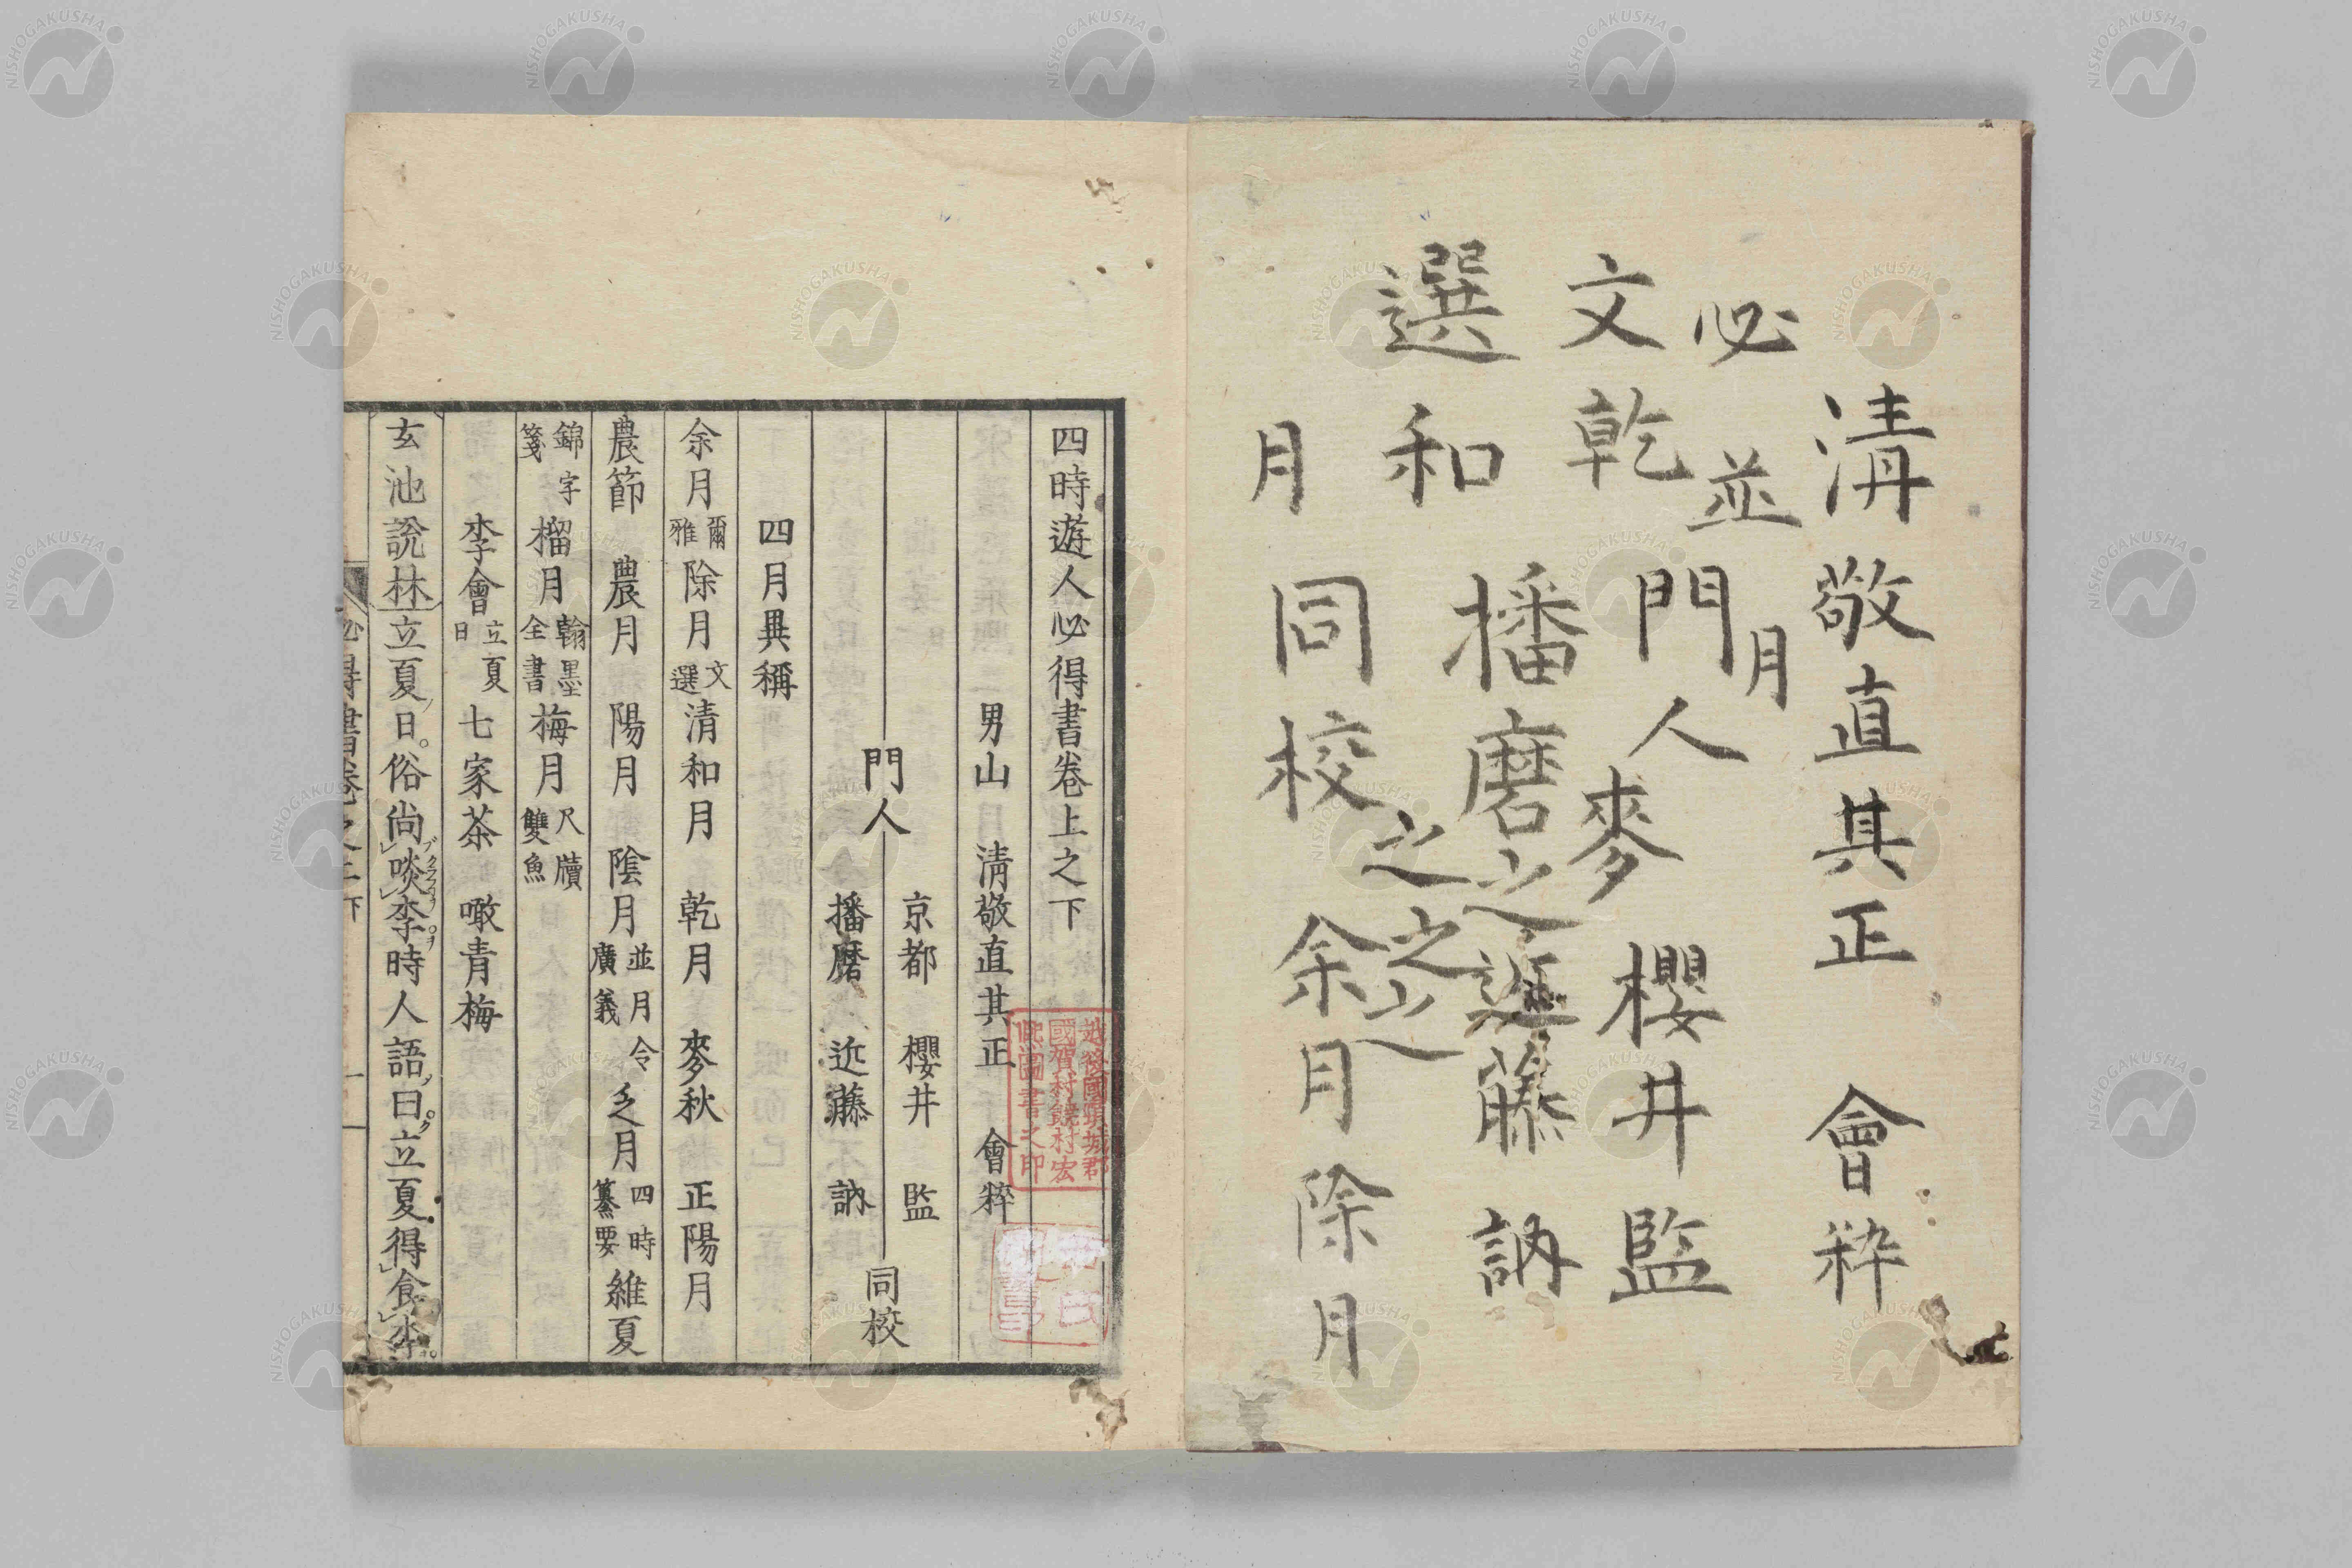 清敬直其正 會粹
必並月
門人 櫻井監
文乾 麥
播磨之近藤 訥
選和
之之之
同校 余月除月
月
四時遊人必得書卷上之下
男山 淸敬直其正 會粹
門人 京都 櫻井 監
播磨 近藤 訥 同校
四月異稱
余月 爾雅 除月 文選 清和月 乾月 麥秋 正陽月
農節 農月 陽月 陰月 並月令廣義 乏月 四時纂要 維夏
錦字箋 榴月 翰墨全書 梅月 尺牘雙魚
李會 立夏日 七家茶 噉青梅
玄池說林立夏日。俗尚啖李時人語曰立夏得食李
必得書卷之上下
越後國頸城郡
國賀村饒村宏
凞圖書之印
NISHOGAKUSHA